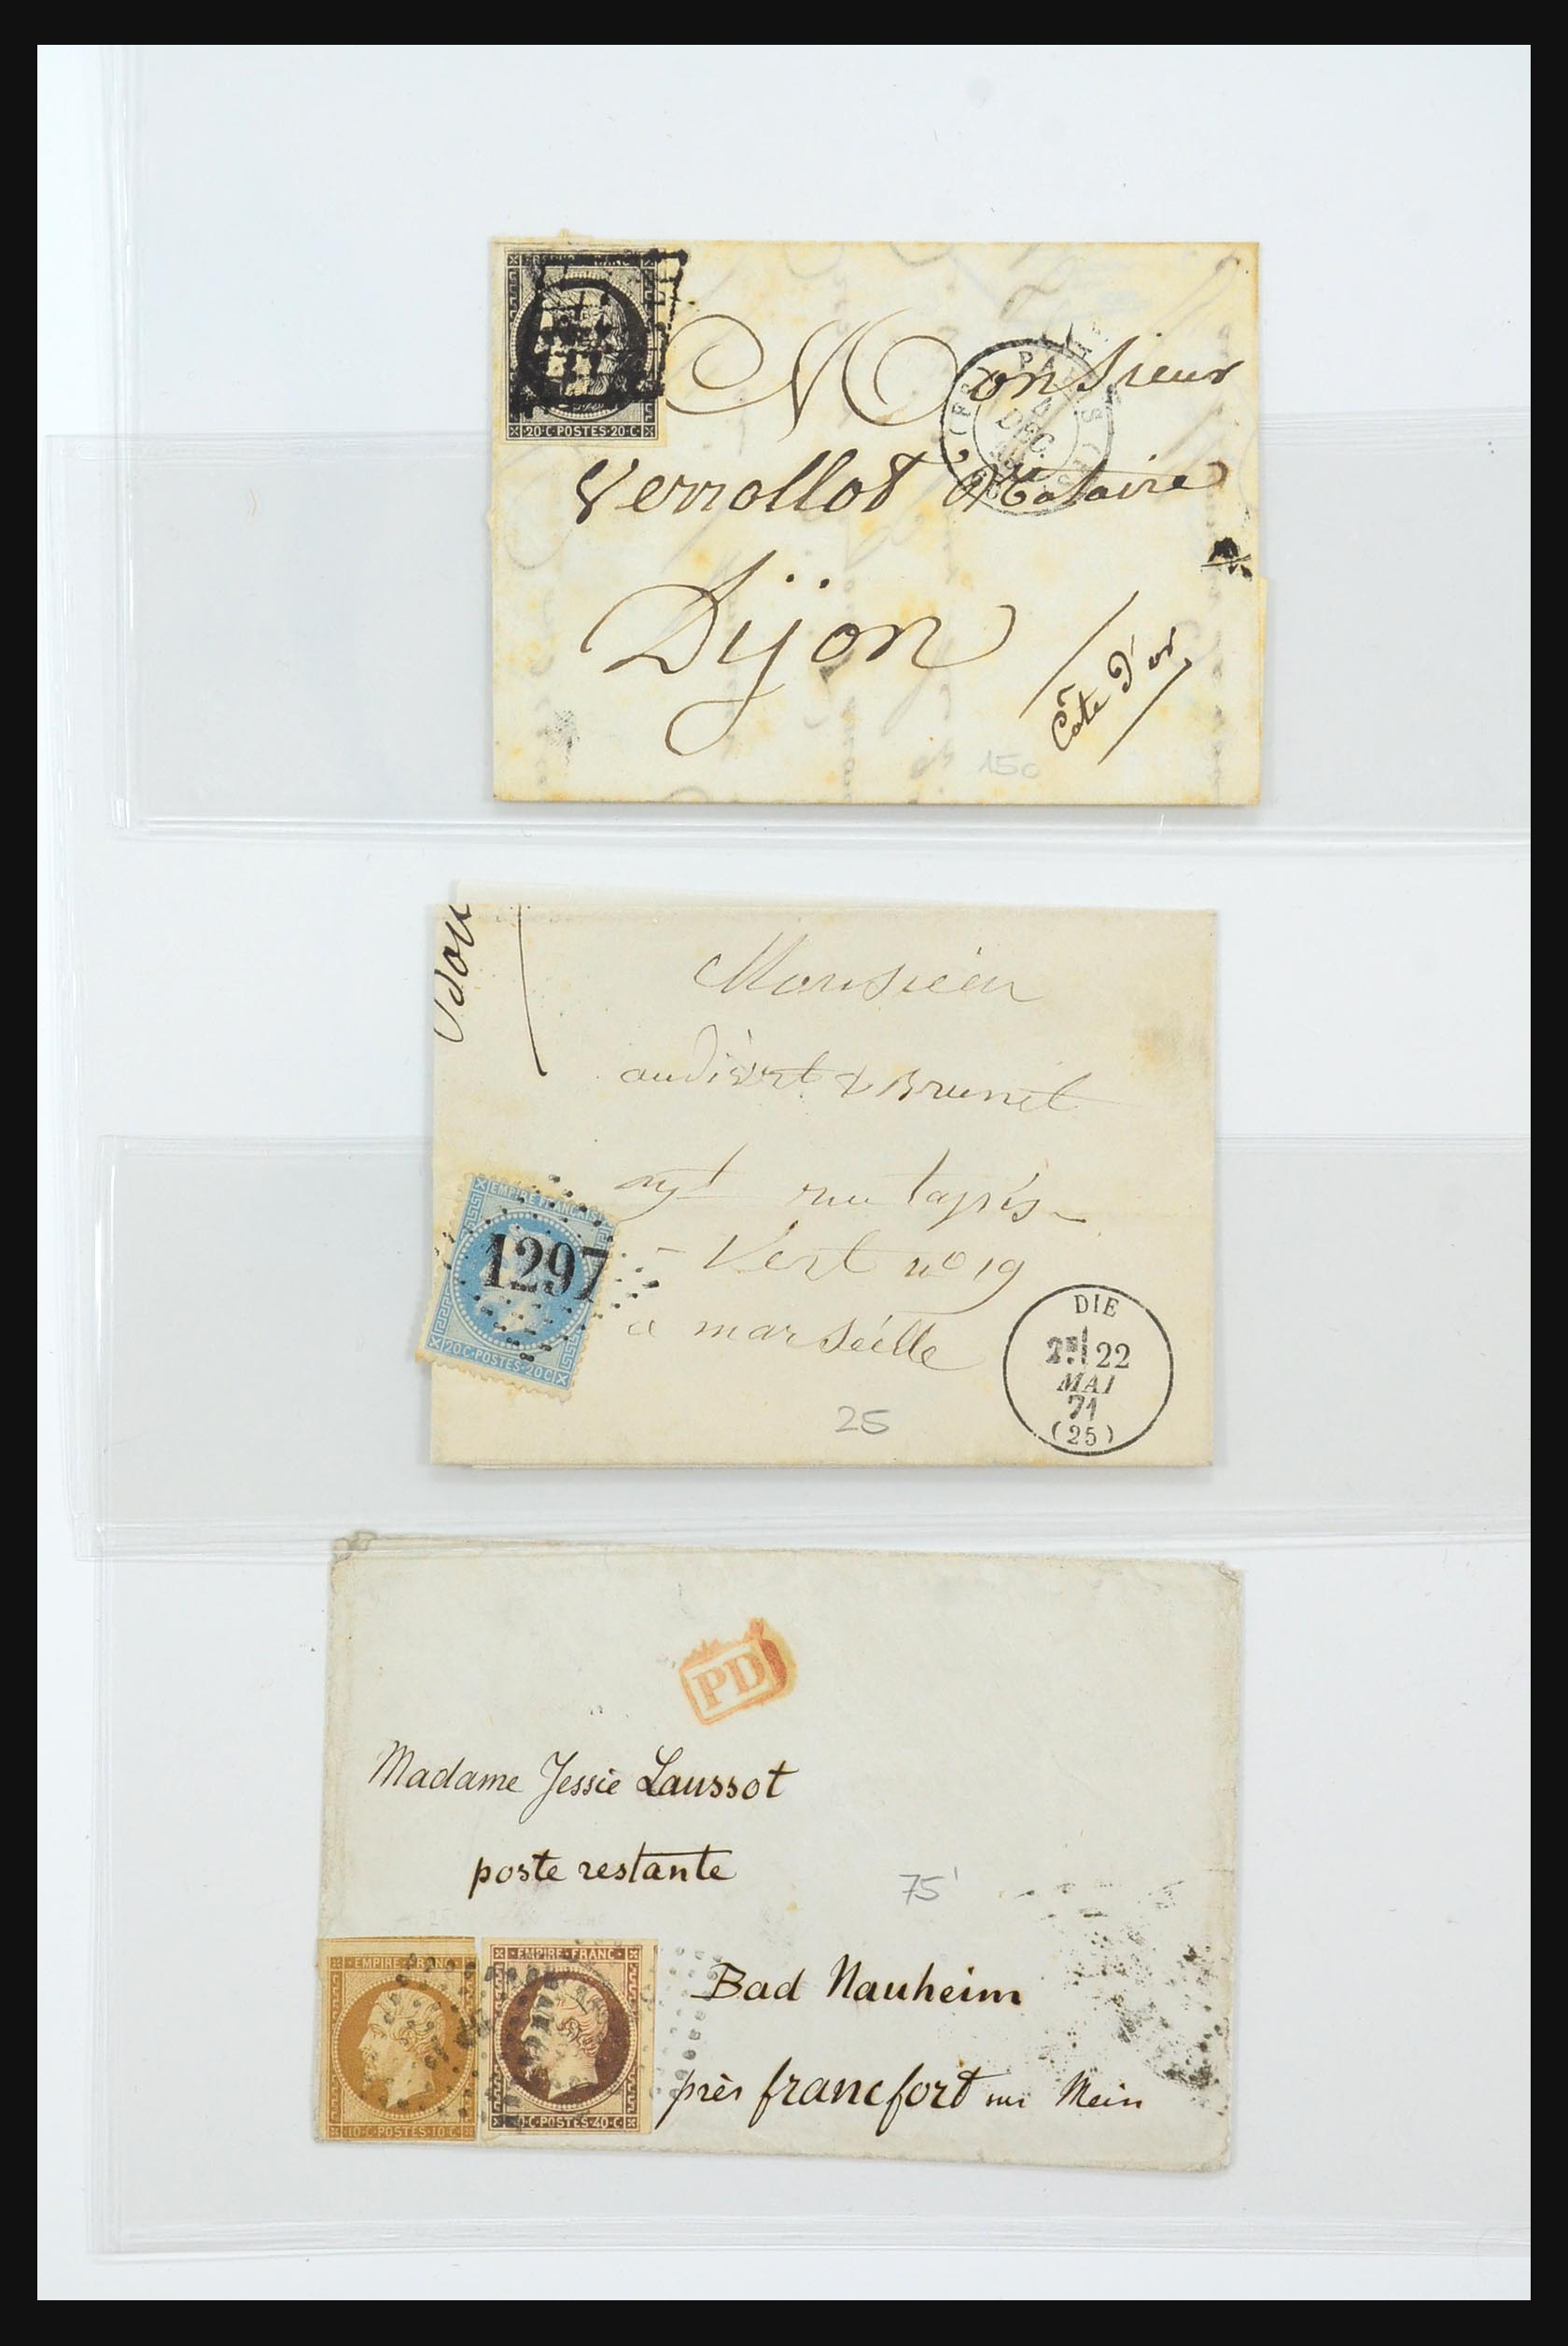 20·C·POSTES·20·C
Monsieur
PARIS
DEC.
Verrollot Notaire
Dijon
Côte D'or
150
Monsieur
audibert & Brunet
ngt rue tapis
- Vert nº 19
a marseille
EMPIRE FRANÇAIS
1297
20C·POSTES·20C
DIE
22
MAI
71
(25)
25
PD
Madame Jessie Laussot
poste restante
75
EMPIRE·FRANC
10·C·POSTES·10·C
EMPIRE·FRANC·
40·C·POSTES·40·C
Bad Nauheim
près francfort sur Mein